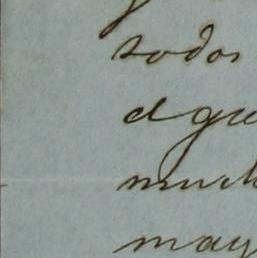 todos
el que
much
may